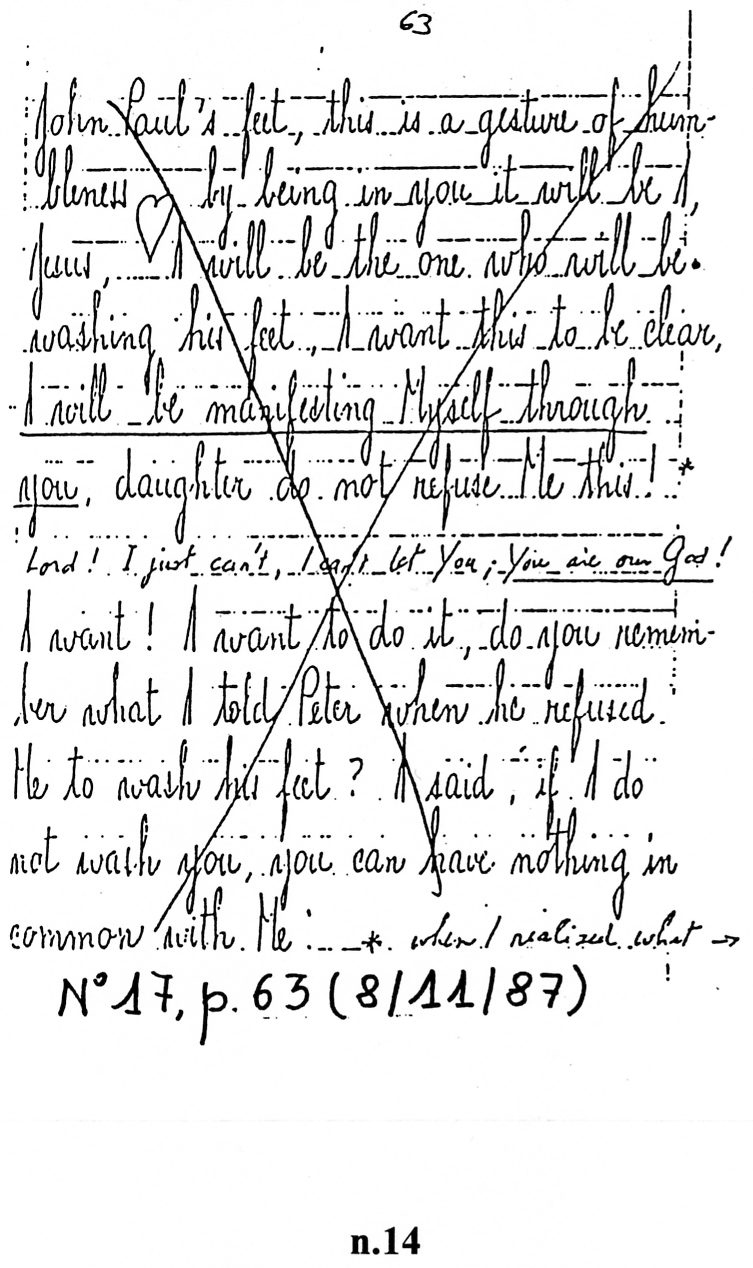 63
John Paul's feet, this is a gesture of hum-
bleness ♡ by being in you it will be I,
Jesus, ..... I will be the one who will be
washing his feet, I want this to be clear,
I will be manifesting Myself through
you, daughter do not refuse Me this! *
Lord! I just can't, I can't let You; You are our God!
I want! I want to do it, do you remem-
ber what I told Peter when he refused
Me to wash his feet? I said, if I do
not wash you, you can have nothing in
common with Me : * when I realized what →
N° 17, p. 63 (8/11/87)
n.14